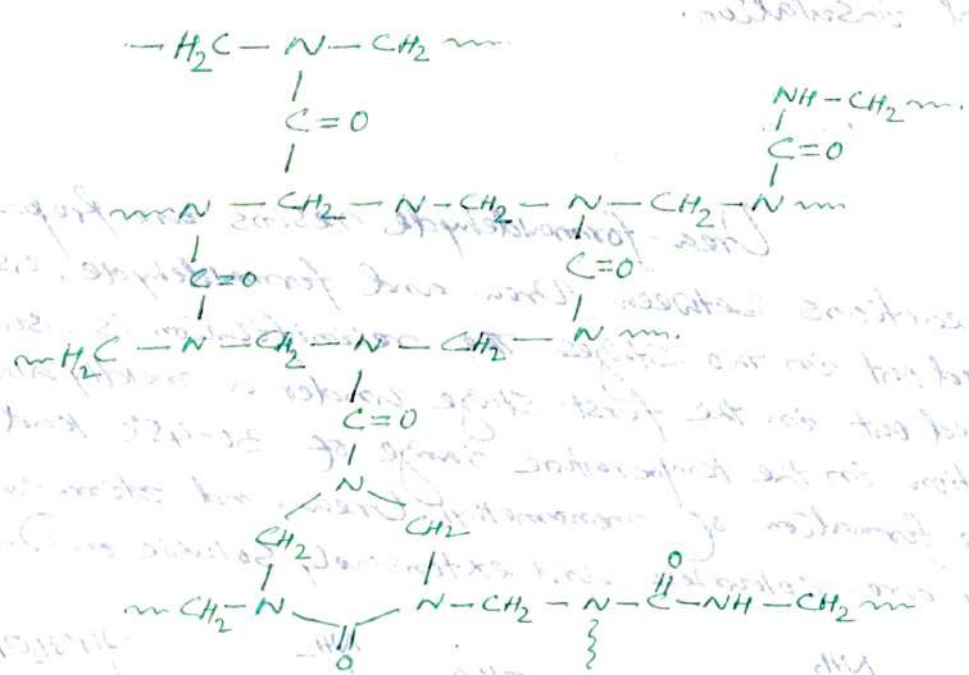 — H₂C — N — CH₂ ~~~
C=O
NH — CH₂ ~~~
C=O
~~~ N — CH₂ — N — CH₂ — N — CH₂ — N ~~~
C=O
C=O
~~~ H₂C — N — CH₂ — N — CH₂ — N ~~~
C=O
N
CH₂ CH₂
~~~ CH₂ — N N — CH₂ — N — C — NH — CH₂ ~~~
O
C
O